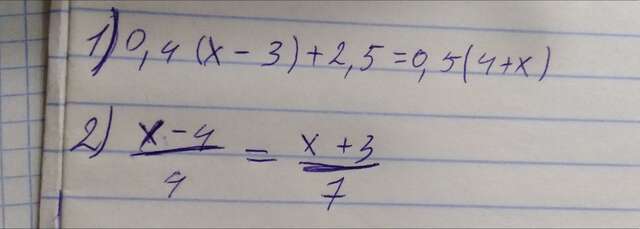 1) 0,4(x-3)+2,5=0,5(4+x)
2) (x-4)/4 = (x+3)/7